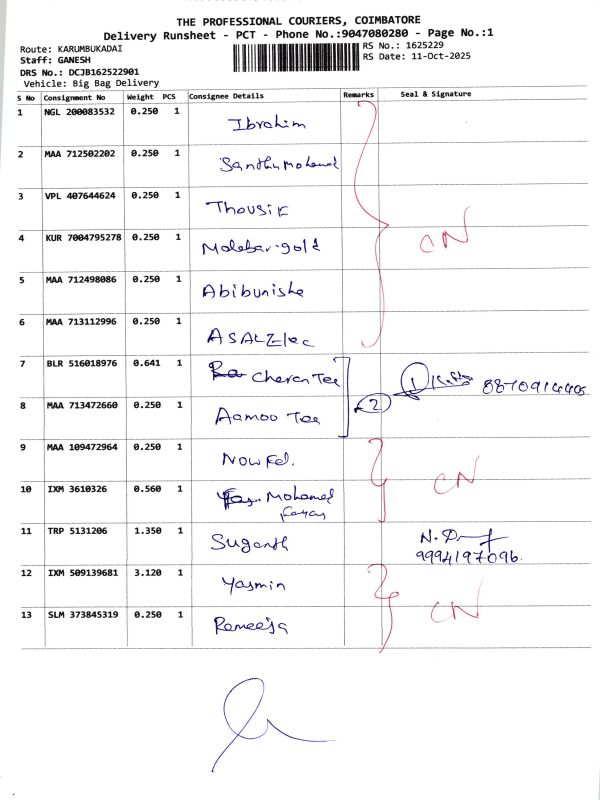 THE PROFESSIONAL COURIERS, COIMBATORE
Delivery Runsheet - PCT - Phone No.:9047080280 - Page No.:1
Route: KARUMBUKADAI
RS No.: 1625229
Staff: GANESH
RS Date: 11-Oct-2025
DRS No.: DCJB162522901
Vehicle: Big Bag Delivery
S No Consignment No Weight PCS Consignee Details Remarks Seal & Signature
1 NGL 200083532 0.250 1 Ibrahim
2 MAA 712502202 0.250 1 Santhu Mohamed
3 VPL 407644624 0.250 1 Thousik
4 KUR 7004795278 0.250 1 Malabar gold CN
5 MAA 712498086 0.250 1 Abibunisha
6 MAA 713112996 0.250 1 ASALElec
7 BLR 516018976 0.641 1 Cheran Tex 8870914405
8 MAA 713472660 0.250 1 Aamoo Tex 2
9 MAA 109472964 0.250 1 Now Fed. CN
10 IXM 3610326 0.560 1 Mohamed
11 TRP 5131206 1.350 1 Suganth
9994197096.
12 IXM 509139681 3.120 1 Yasmin CN
13 SLM 373845319 0.250 1 Rameeja